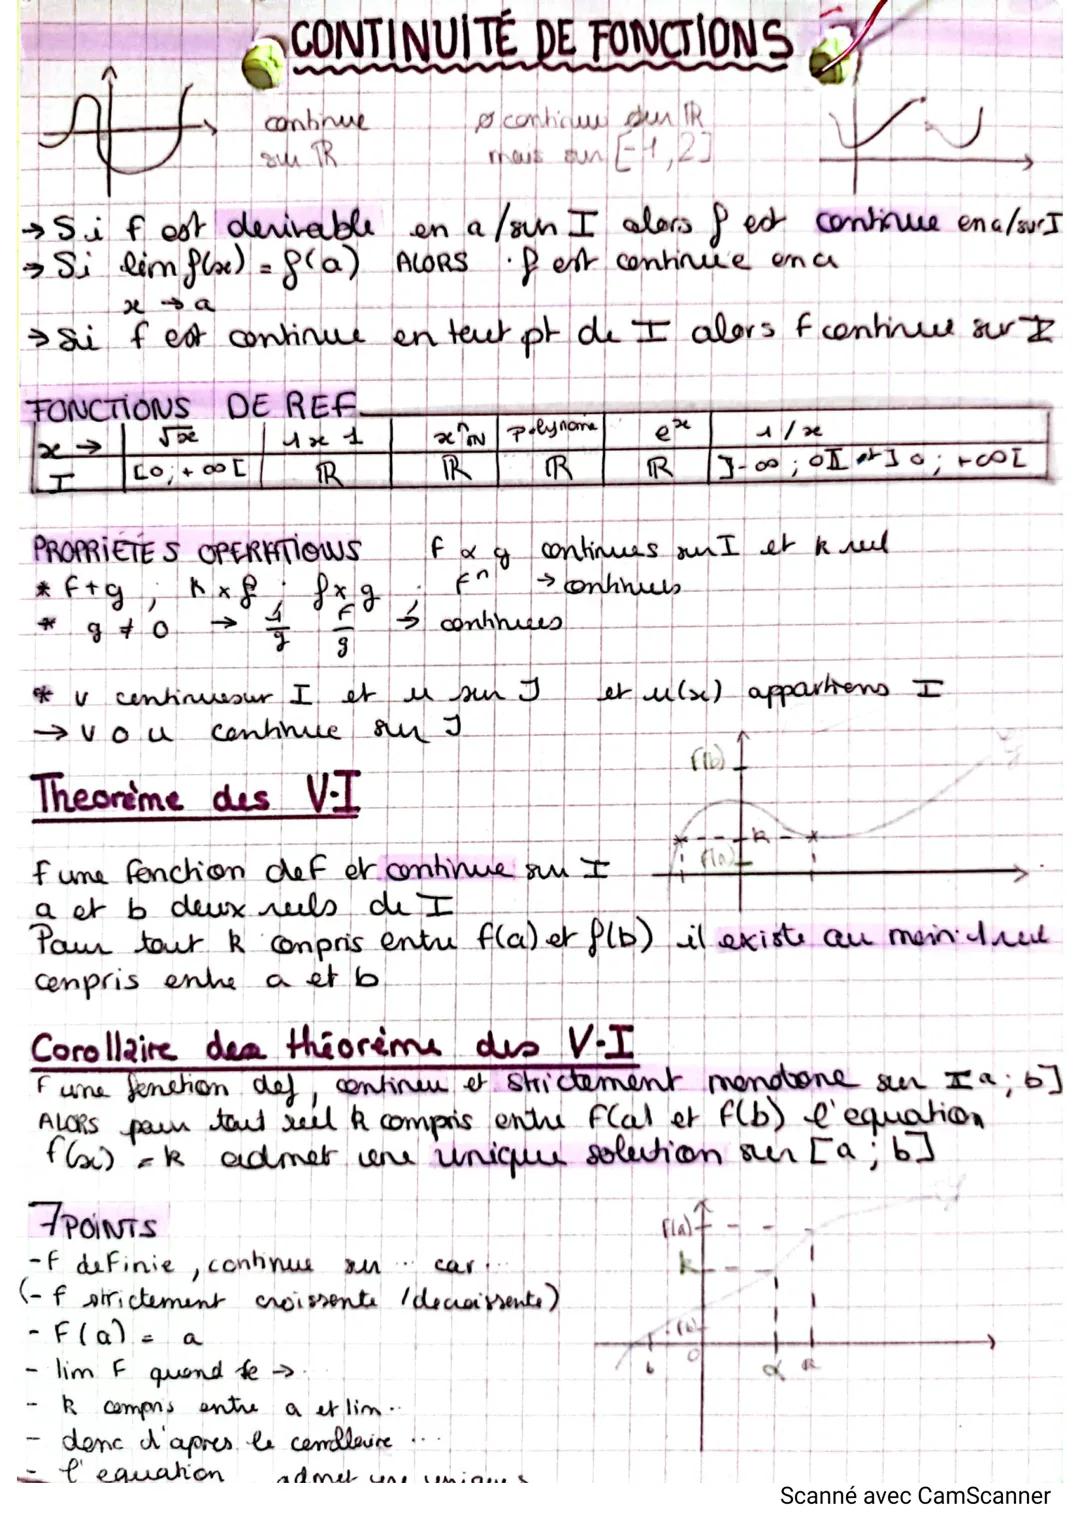 CONTINUITÉ DE FONCTIONS
continue
sur ℝ
∅ continue sur ℝ
mais sur [-1,2]
→ Si f est derivable en a/sur I alors f est continue en a/sur I
→ Si lim f(x) = f(a) ALORS f est continue en a
x → a
→ si f est continue en tout pt de I alors f continue sur I
FONCTIONS DE REF.
x → √x |x| xⁿ ℕ polynome eˣ 1/x
I [0;+∞[ ℝ ℝ ℝ ℝ ]-∞;0[ et ]0;+∞[
PROPRIÉTES OPERATIONS f & g continues sur I et k reel
* f+g ; k×f ; f×g ; fⁿ → continues
* g ≠ 0 → 1/g f/g → continues
* v continue sur I et u sur J et u(x) appartiens I
→ v o u continue sur J
Theorème des V.I
f(b)
k
f(a)
f une fonction def et continue sur I
a et b deux reels de I
Pour tout k compris entre f(a) et f(b) il existe au moin 1 reel
compris entre a et b
Corollaire des théorème des V.I
f une fonction def, continue et strictement monotone sur [a;b]
ALORS pour tout reel k compris entre f(a) et f(b) l'equation
f(x) = k admet une unique solution sur [a;b]
7 POINTS
- f definie, continue sur .. car ...
(- f strictement croissente / decroissente)
- F(a) = a
- lim F quand x → ..
- k compris entre a et lim ..
- donc d'apres le corollaire ...
- l'equation admet une unique
f(a)
k
f(b)
b 0 α a
Scanné avec CamScanner